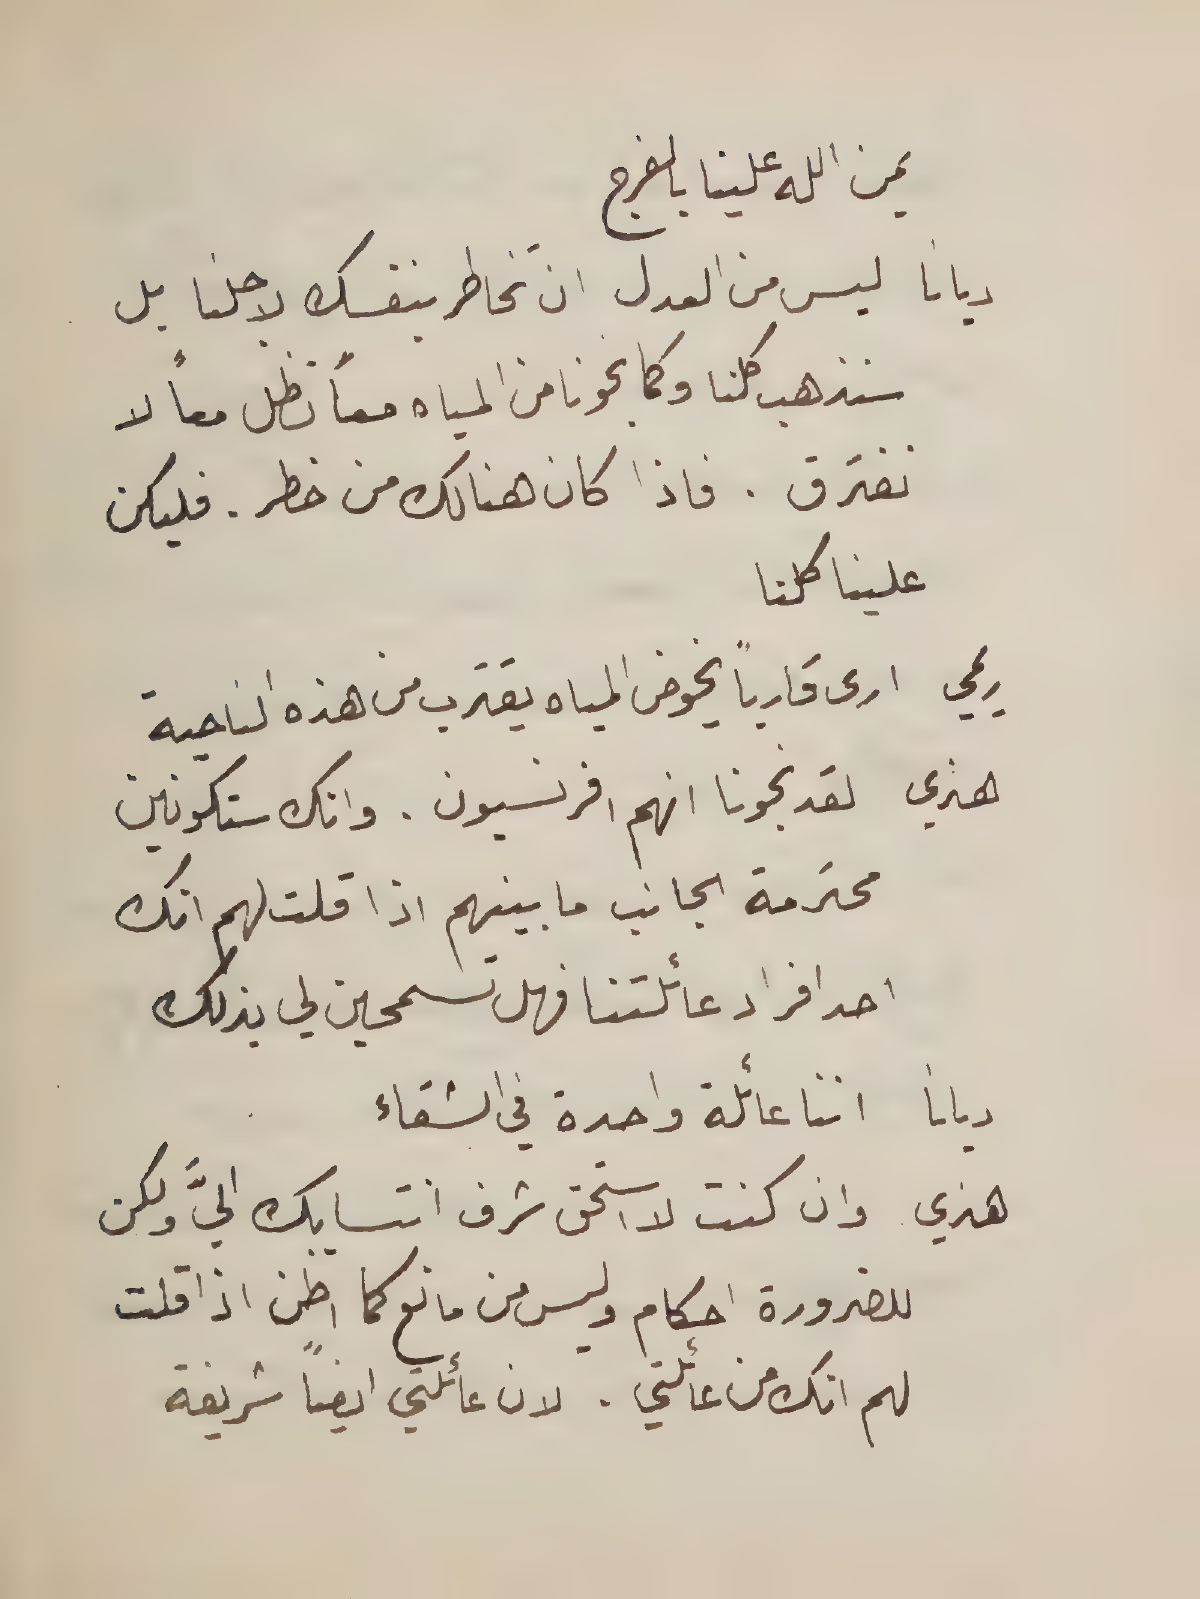 يمن الله علينا بالفرج
ديانا ليس من العدل ان تخاطر بنفسك لاجلنا بل
سنذهب كلنا وكما نجونا من المياه معاً نظل معاً لا
نفترق . فاذا كان هنالك من خطر . فليكن
علينا كلنا
ريمي ارى قارباً يخوض المياه يقترب من هذه الناحية
هنري لقد نجونا انهم افرنسيون . وانك ستكونين
محترمة الجانب ما بينهم اذا قلت لهم انك
احد افراد عائلتنا فهل تسمحين لي بذلك
ديانا اننا عائلة واحدة في الشقاء
هنري وان كنت لا استحق شرف انتسابك اليَّ ولكن
للضرورة احكام وليس من مانع كما اظن اذا قلت
لهم انك من عائلتي . لان عائلتي ايضاً شريفة